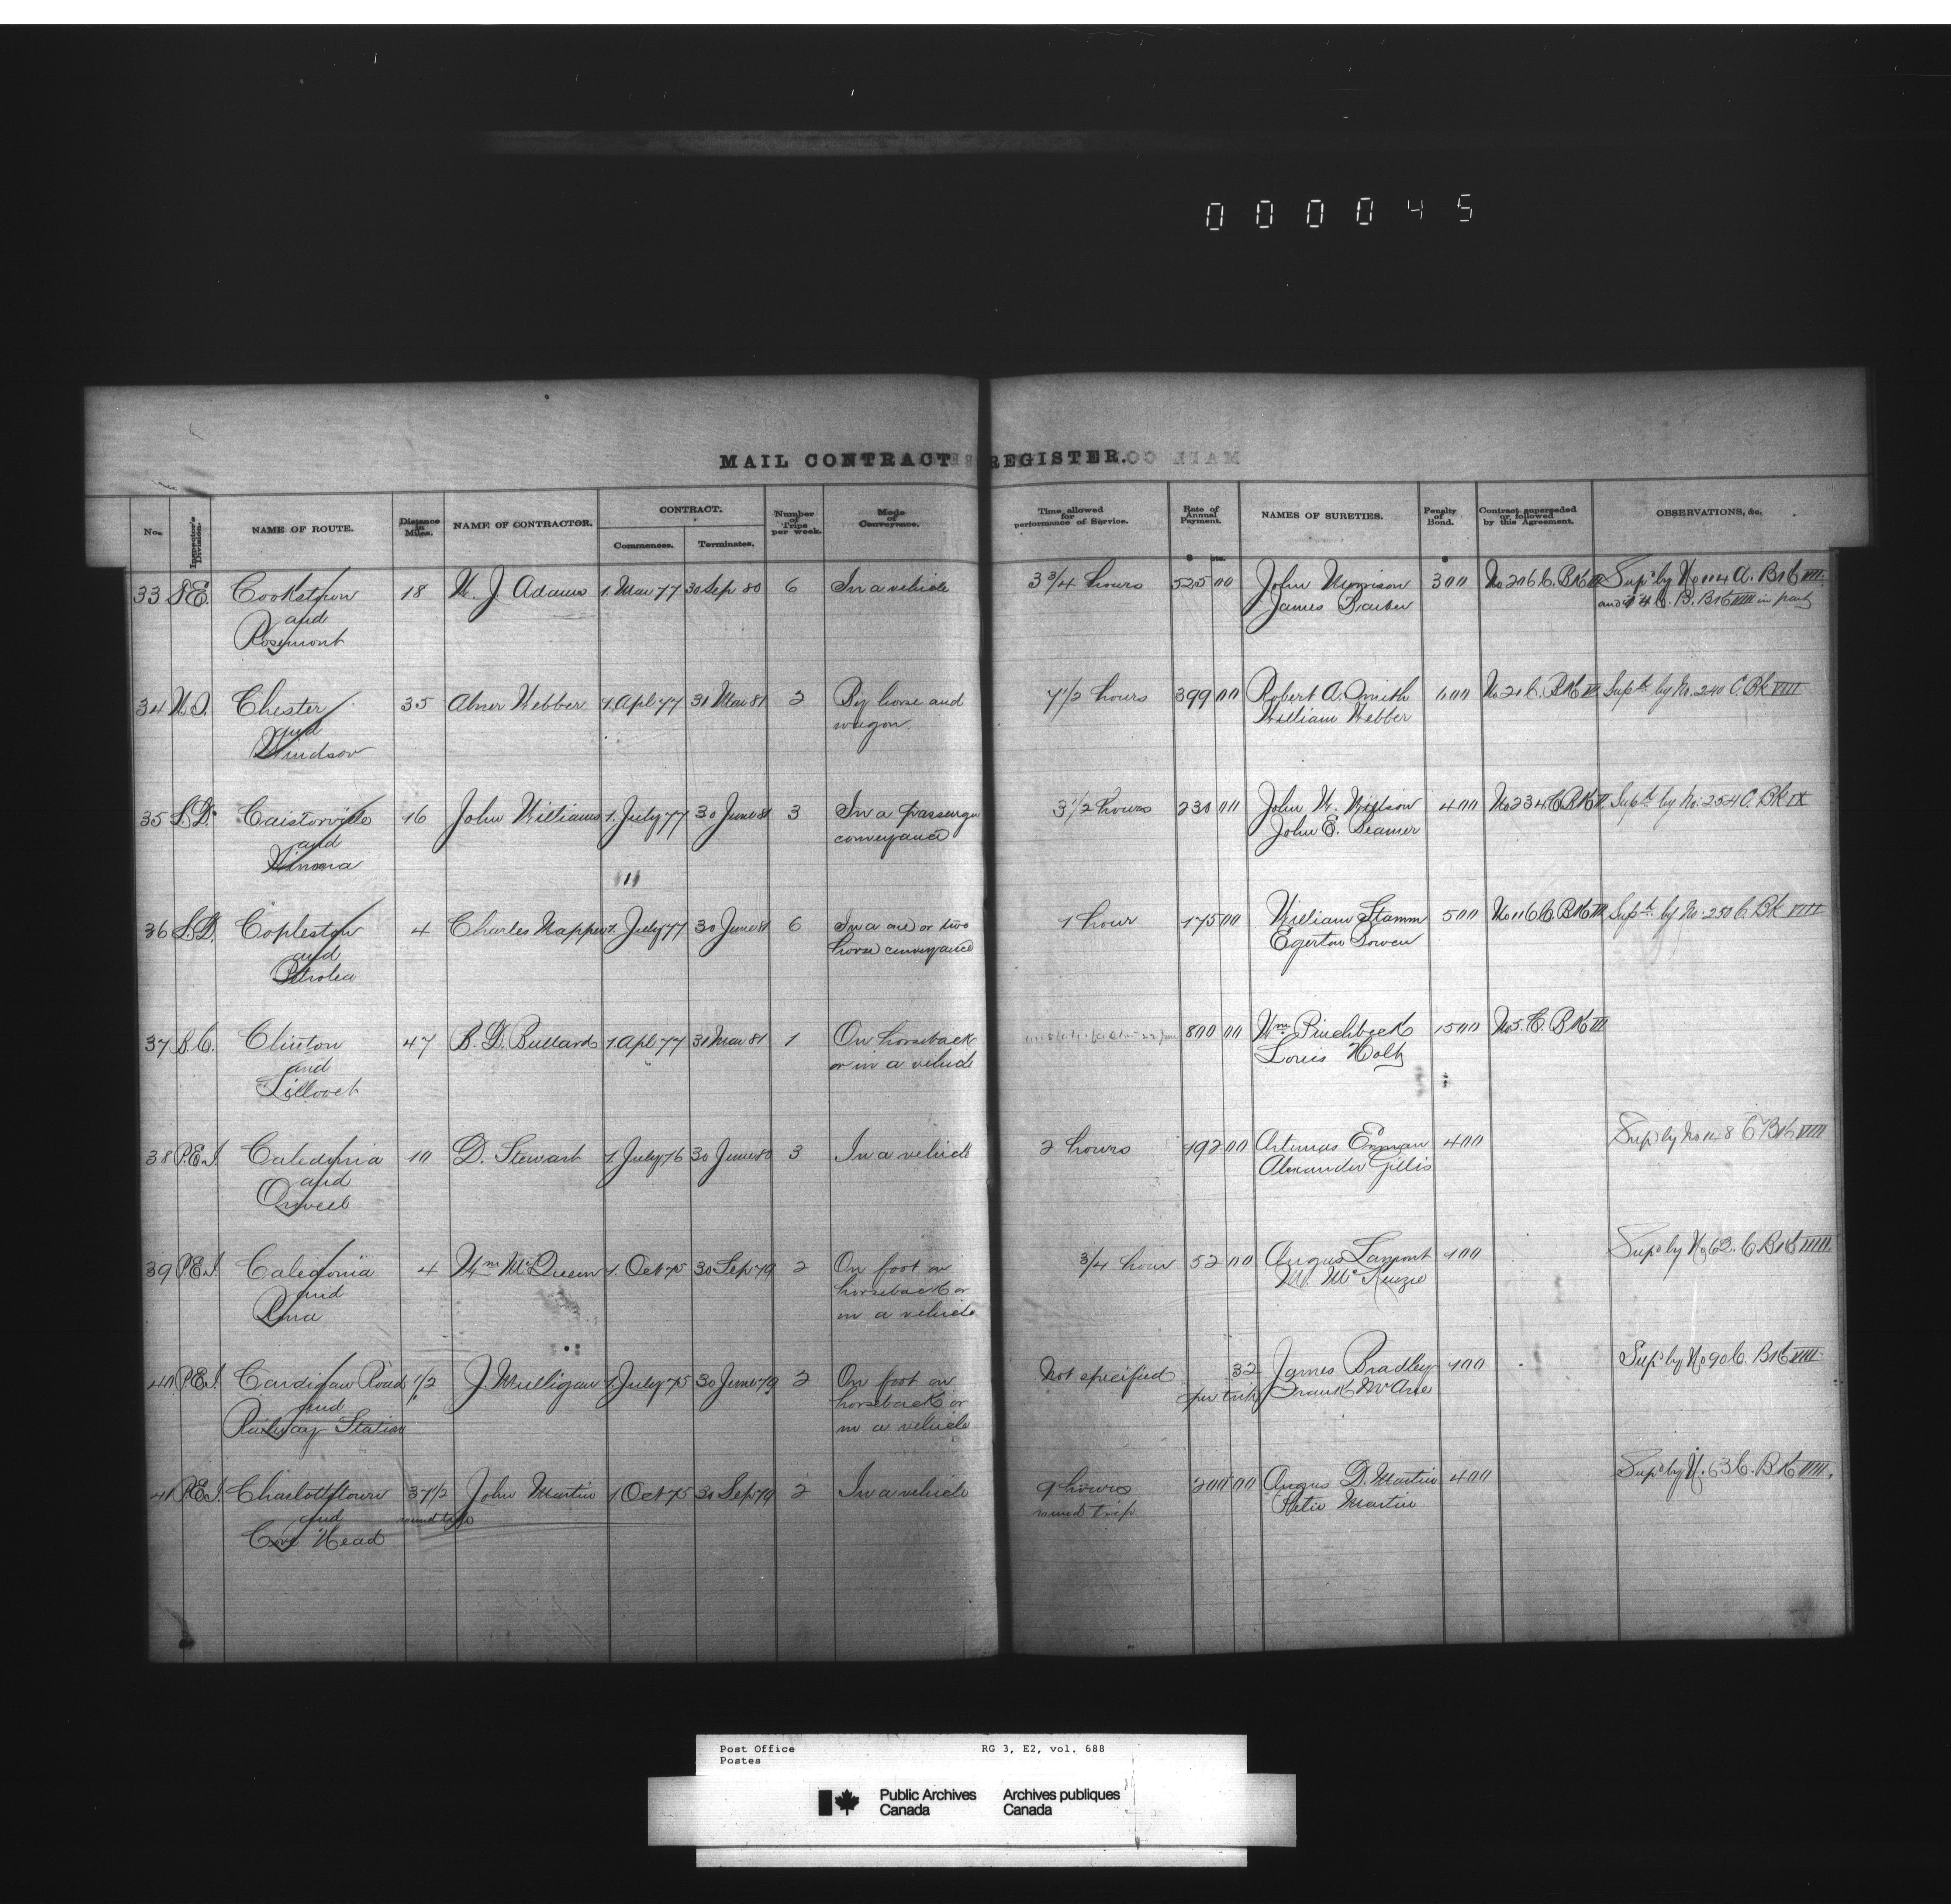 000045
MAIL CONTRACT REGISTER.
No. Inspector's Division. NAME OF ROUTE. Distance in Miles. NAME OF CONTRACTOR. CONTRACT. Commences. Terminates. Number of Trips per week. Mode of Conveyance. Time allowed for performance of Service. Rate of Annual Payment. NAMES OF SURETIES. Penalty of Bond. Contract superseded or followed by this Agreement. OBSERVATIONS, &c.
$ cts. $
33 Cookstown 18 W. J. Adams 1. Mar 77 30 Sep 80 6 In a vehicle 3 3/4 hours 525 00 John Morrison 300 No 206 C. Bk Supd by No 114 A. Bk VIII
and James Barber and C. B. Bk VIII in part
Rosemont
34 N.S. Chester 35 Abner Webber 1. Apl 77 31 Mar 81 2 By horse and 7 1/2 hours 399 00 Robert A. Smith 600 No 21 C. Bk Supd by No. 240 C. Bk VIII
and wagon. William Webber
Windsor
35 L.D. Caistorville 16 John Williams 1. July 77 30 June 81 3 In a passenger 3 1/2 hours 230 00 John W. Willson 400 No 234 C. Bk Supd by No. 254 C. Bk IX
and conveyance John E. Beamer
Winona
36 L.D. Copleston 4 Charles Napper 1. July 77 30 June 81 6 In a one or two 1 hour 175 00 William Stamm 500 No 116 C. Bk Supd by No. 250 C. Bk VIII
and horse conveyance Egerton Bowen
Petrolea
37 B.C. Clinton 47 1. Apl 77 31 Mar 81 1 On horseback 800 00 Wm Pinchbeck 1500 No 5. C. Bk III
and or in a vehicle Louis Holtz
Lillooet
38 P.E.I. Caledonia 10 D. Stewart 1. July 76 30 June 80 3 In a vehicle 2 hours 192 00 Artemas Enman 400 Supd by No 148 C Bk VIII
and Alexander Gillis
Orwell
39 P.E.I. Caledonia 4 Wm McQueen 1. Oct 75 30 Sep 79 2 On foot on 3/4 hour 52 00 Angus Lamont 100 Supd by No 62. C. Bk VIII.
and horseback or M. McKenzie
in a vehicle
40 P.E.I. Cardigan Road 1/2 J. Mulligan 1. July 75 30 June 79 2 On foot on Not specified 32 James Bradley 100 Supd by No 90 C. Bk VIII
and horseback or per trip
Railway Station in a vehicle
41 P.E.I. Charlottetown 37 1/2 John Martin 1. Oct 75 30 Sep 79 2 In a vehicle 9 hours 200 00 Angus D. Martin 400 Supd by N. 63 C. Bk VIII.
and round trip round trip Peter Martin
Cove Head
Post Office RG 3, E2, vol. 688
Postes
Public Archives Archives publiques
Canada Canada